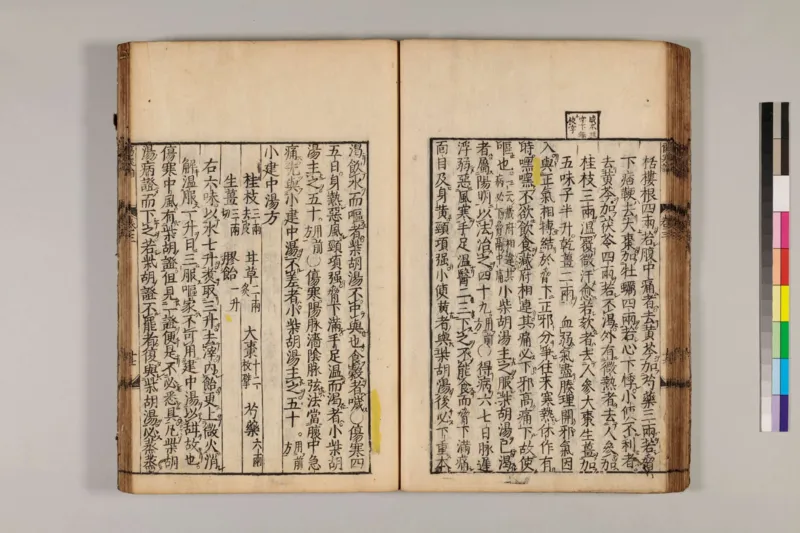 栝樓根四兩若腹中痛者去黄芩加芍藥三兩若脅
下痞鞕去大棗加牡蠣四兩若心下悸小便不利者
去黄芩加茯苓四兩若不渴外有微熱者去人參加
桂枝三兩温覆微汗愈若欬者去人參大棗生薑加
五味子半升乾薑二兩 血弱氣盡腠理開邪氣因
入與正氣相摶結於脅下正邪分爭往來寒熱休作有
時嘿嘿不欲飲食藏府相連其痛必下邪高痛下故使
嘔也 小柴胡湯主之服柴胡湯已渴
者屬陽明以法治之四十九 用前方 〇得病六七日脉遲
浮弱惡風寒手足温醫二三下之不能食而脅下滿痛
面目及身黄頸項强小便黄者與柴胡湯後必下重本
渴飲水而嘔者柴胡湯不中與也食穀者噦〇傷寒四
五日身熱惡風頸項强脅下滿手足温而渴者小柴胡
湯主之五十 用前方 〇傷寒陽脉濇陰脉弦法當腹中急
痛先與小建中湯不差者小柴胡湯主之五十一 用前方
小建中湯方
桂枝三兩去皮 甘草二兩炙 大棗十二枚擘 芍藥六兩
生薑三兩切 膠飴一升
右六味以水七升煑取三升去滓内飴更上微火消
解温服一升日三服嘔家不可用建中湯以甜故也
傷寒中風有柴胡證但見一證便是不必悉具凡柴胡
湯病證而下之若柴胡證不罷者復與柴胡湯必蒸蒸